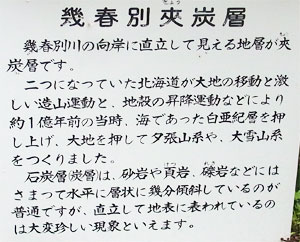 幾春別夾炭層
幾春別川の向岸に直立して見える地層が夾
炭層です。
二つになっていた北海道が大地の移動と激
しい造山運動と、地殻の昇降運動などにより
約1億年前の当時、海であった白亜紀層を押
し上げ、大地を押して夕張山系や、大雪山系
をつくりました。
石炭層(炭層)は、砂岩や頁岩、礫岩などには
さまって水平に層状に幾分傾斜しているのが
普通ですが、直立して地表に表われているの
は大変珍しい現象といえます。